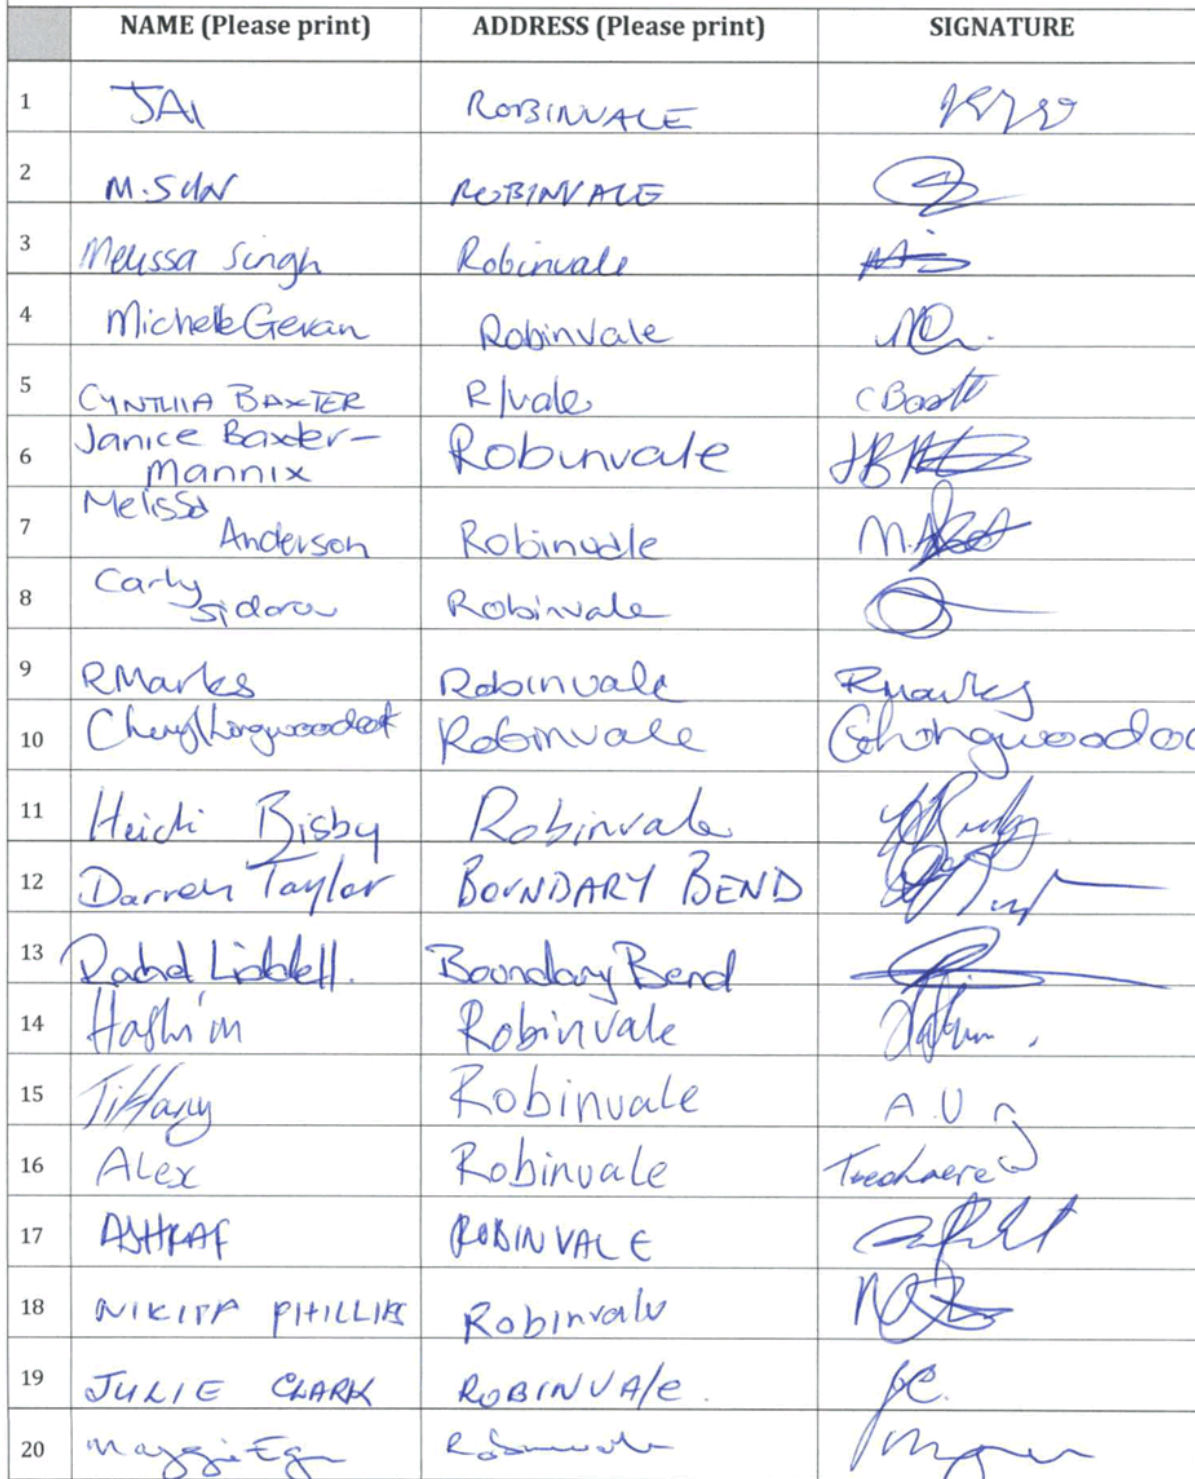 NAME (Please print) ADDRESS (Please print) SIGNATURE
1 JAI ROBINVALE
2 M.SUN ROBINVALE
3 Melissa Singh Robinvale
4 Michelle Gevan Robinvale
5 CYNTHIA BAXTER R/vale
6 Janice Baxter-
Mannix Robinvale
7 Melissa
Anderson Robinvale
8 Carly
Sidorow Robinvale
9 RMarks Robinvale Rmarks
10 Cheryl Robinvale
11 Heidi Bisby Robinvale
12 Darren Taylor BOUNDARY BEND
13 Rachel Liddell. Boundary Bend
14 Hashim Robinvale
15 Tiffany Robinvale A.U
16 Alex Robinvale
17 ASHRAF ROBINVALE
18 NIKITA PHILLIPS Robinvale
19 JULIE CLARK ROBINVAle. JC.
20 Maggie Robinvale